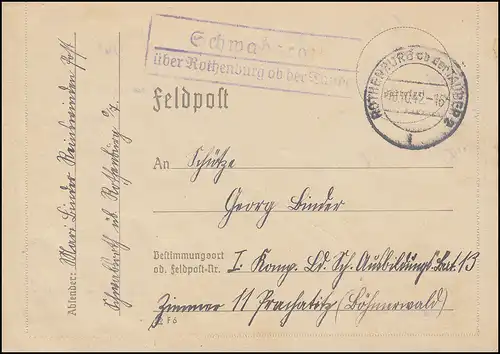 über Rothenburg ob der Tauber
ROTHENBURG ob der TAUBER 2
Feldpost
An Schütze
Georg Binder
Bestimmungsort
od. Feldpost-Nr. I. Komp. Ld. Sch. Ausbildungs Batt. 13
Zimmer 11 Prachatitz (Böhmerwald)
Absender: Mari Binder
Rothenburg o/T.